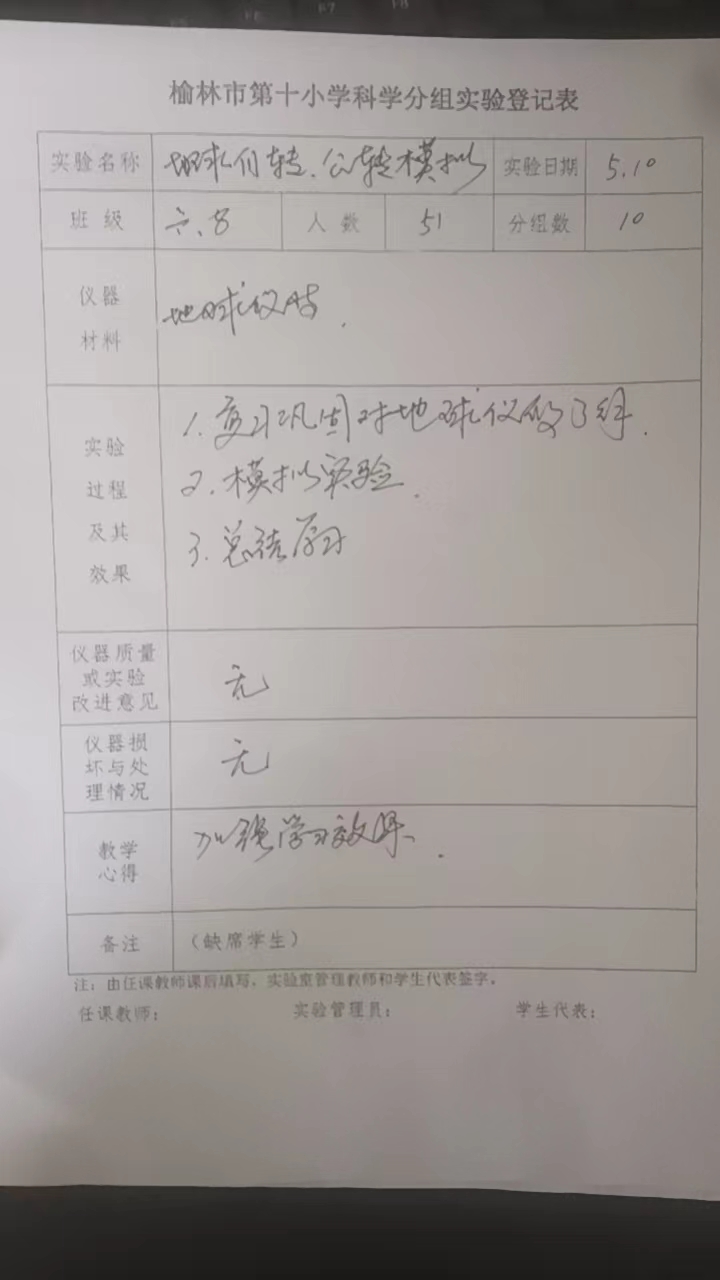 榆林市第十小学科学分组实验登记表
实验名称 地球自转、公转模拟 实验日期 5.10
班级 六.8 人数 51 分组数 10
仪器
材料
地球仪等.
实验
过程
及其
效果
1.复习巩固对地球仪的了解.
2.模拟实验.
3.总结
仪器质量
或实验
改进意见
无
仪器损
坏与处
理情况
无
教学
心得
加强学习效果.
备注 (缺席学生)
注:由任课教师课后填写,实验室管理教师和学生代表签字。
任课教师: 实验管理员: 学生代表: